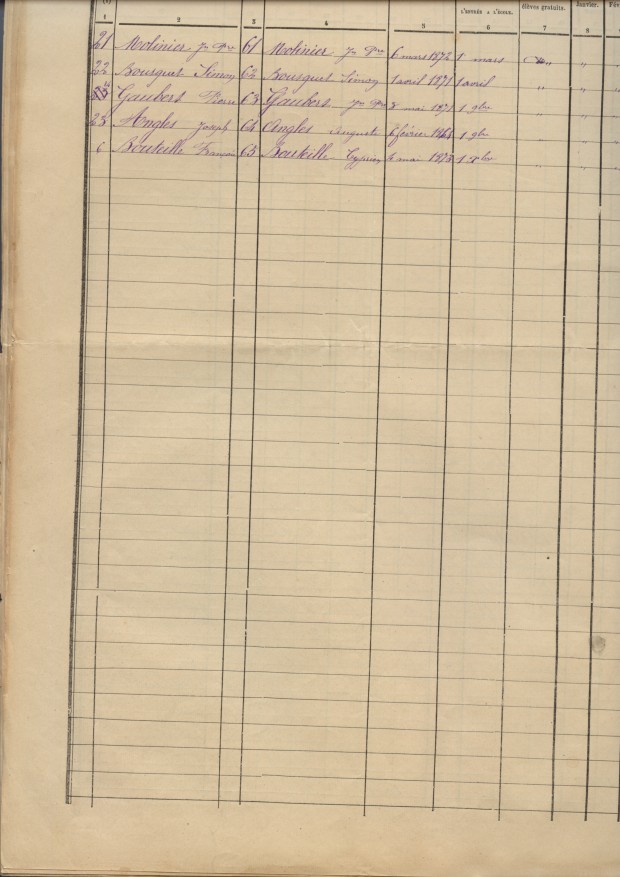 L'ENTRÉE A L'ÉCOLE. élèves gratuits. Janvier.
1 2 3 4 5 6 7 8
21 Molinier Jn Pre 61 Molinier Jn Pre 6 mars 1872 1 mars " "
22 Bousquet Simon 62 Bousquet Simon 1 avril 1871 1 avril " "
Gaubert Pierre 63 Gaubert Jn Pre 8 mai 1871 1 9bre " "
23 Angles Joseph 64 Angles Auguste février 1 9bre " "
6 Bouteille François 65 Bouteille Cyprien mai 1873 1 " "